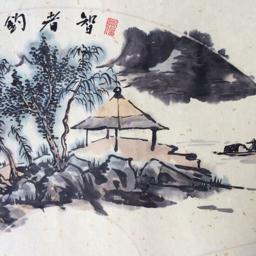 智者钓